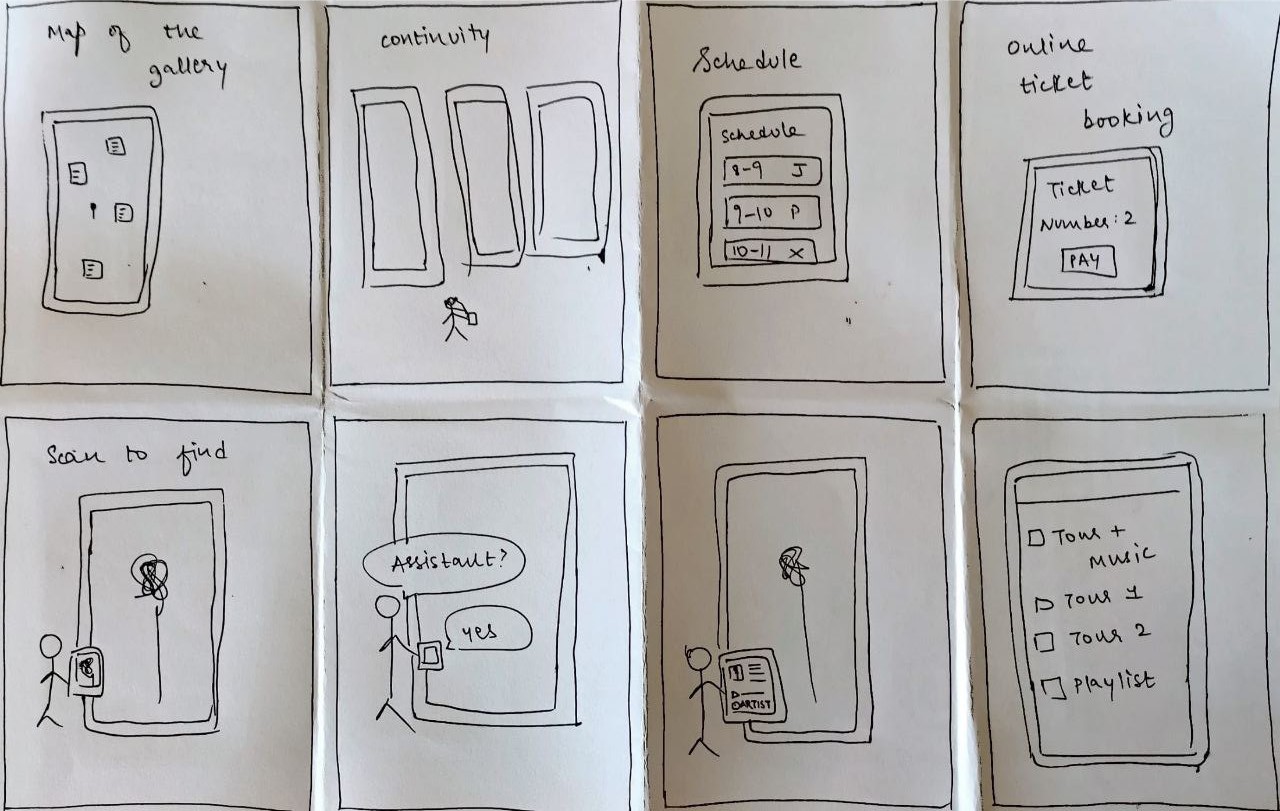 Map of the
gallery
continuity
Schedule
Schedule
8-9 J
9-10 P
10-11 X
online
ticket
booking
Ticket
Number: 2
PAY
Scan to find
Assistant?
yes
ARTIST
Tour +
Music
Tour 1
Tour 2
Playlist